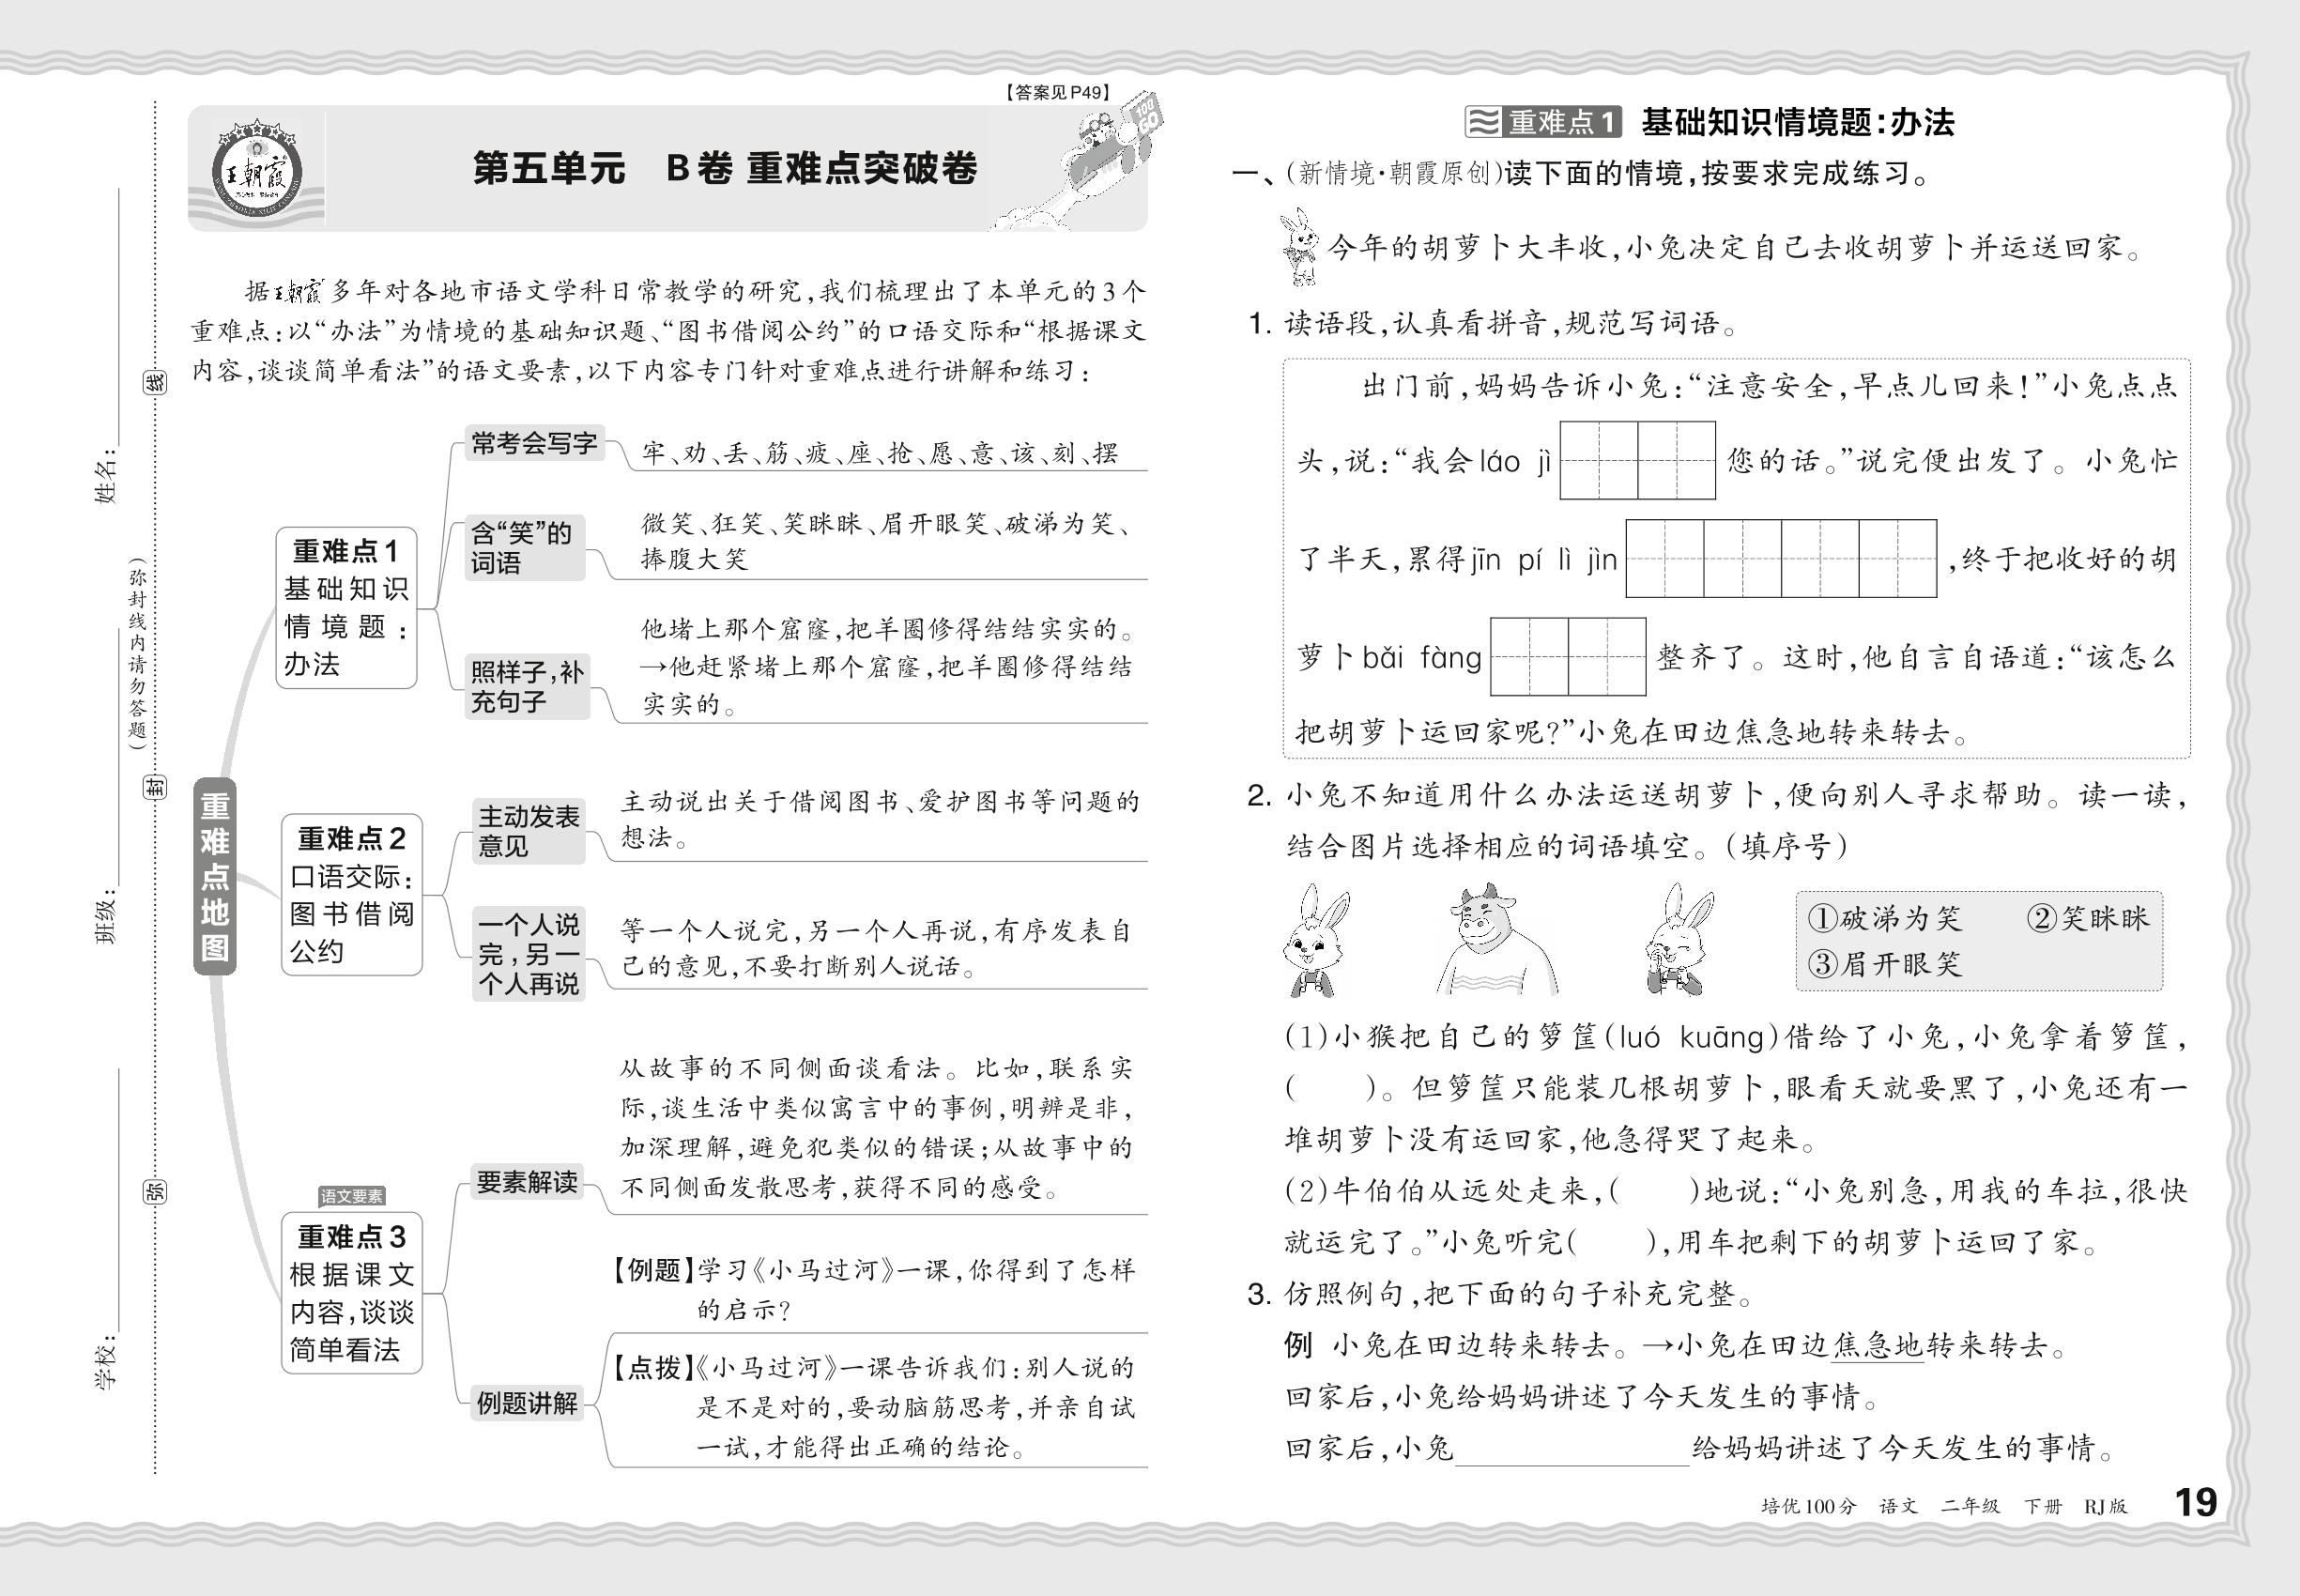 【答案见P49】
王朝霞
第五单元 B卷 重难点突破卷
据王朝霞多年对各地市语文学科日常教学的研究,我们梳理出了本单元的3个
重难点:以“办法”为情境的基础知识题、“图书借阅公约”的口语交际和“根据课文
内容,谈谈简单看法”的语文要素,以下内容专门针对重难点进行讲解和练习:
姓名:
班级:
学校:
(弥封线内请勿答题)
线
封
弥
重难点地图
重难点1
基础知识
情境题:
办法
常考会写字
牢、劝、丢、筋、疲、座、抢、愿、意、该、刻、摆
含“笑”的
词语
微笑、狂笑、笑眯眯、眉开眼笑、破涕为笑、
捧腹大笑
照样子,补
充句子
他堵上那个窟窿,把羊圈修得结结实实的。
→他赶紧堵上那个窟窿,把羊圈修得结结
实实的。
重难点2
口语交际:
图书借阅
公约
主动发表
意见
主动说出关于借阅图书、爱护图书等问题的
想法。
一个人说
完,另一
个人再说
等一个人说完,另一个人再说,有序发表自
己的意见,不要打断别人说话。
语文要素
重难点3
根据课文
内容,谈谈
简单看法
要素解读
从故事的不同侧面谈看法。比如,联系实
际,谈生活中类似寓言中的事例,明辨是非,
加深理解,避免犯类似的错误;从故事中的
不同侧面发散思考,获得不同的感受。
例题讲解
【例题】学习《小马过河》一课,你得到了怎样
的启示?
【点拨】《小马过河》一课告诉我们:别人说的
是不是对的,要动脑筋思考,并亲自试
一试,才能得出正确的结论。
重难点1 基础知识情境题:办法
一、(新情境·朝霞原创)读下面的情境,按要求完成练习。
今年的胡萝卜大丰收,小兔决定自己去收胡萝卜并运送回家。
1. 读语段,认真看拼音,规范写词语。
出门前,妈妈告诉小兔:“注意安全,早点儿回来!”小兔点点
头,说:“我会láo jì 您的话。”说完便出发了。小兔忙
了半天,累得jīn pí lì jìn ,终于把收好的胡
萝卜bǎi fàng 整齐了。这时,他自言自语道:“该怎么
把胡萝卜运回家呢?”小兔在田边焦急地转来转去。
2. 小兔不知道用什么办法运送胡萝卜,便向别人寻求帮助。读一读,
结合图片选择相应的词语填空。(填序号)
①破涕为笑 ②笑眯眯
③眉开眼笑
(1)小猴把自己的箩筐(luó kuāng)借给了小兔,小兔拿着箩筐,
( )。但箩筐只能装几根胡萝卜,眼看天就要黑了,小兔还有一
堆胡萝卜没有运回家,他急得哭了起来。
(2)牛伯伯从远处走来,( )地说:“小兔别急,用我的车拉,很快
就运完了。”小兔听完( ),用车把剩下的胡萝卜运回了家。
3. 仿照例句,把下面的句子补充完整。
例 小兔在田边转来转去。→小兔在田边焦急地转来转去。
回家后,小兔给妈妈讲述了今天发生的事情。
回家后,小兔____________给妈妈讲述了今天发生的事情。
培优100分 语文 二年级 下册 RJ版 19